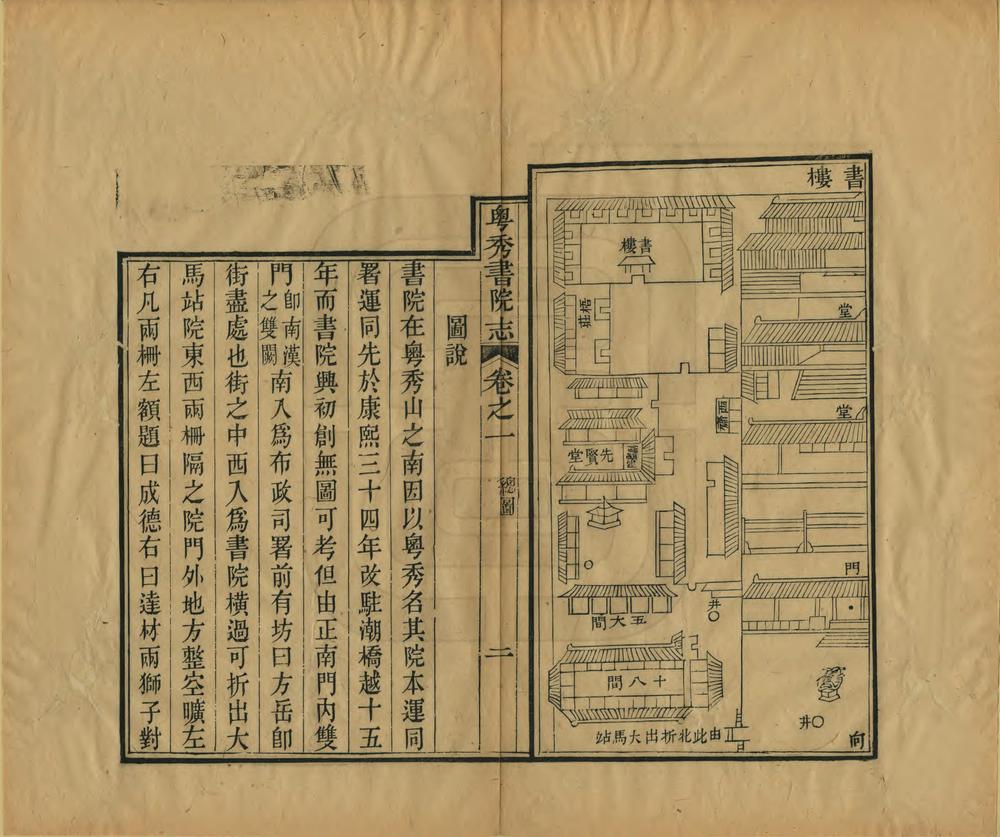 書樓
堂
堂
門
井
向
書樓
栖艇
先賢堂
井
五大間
十八間
由此北折出大馬站
粵秀書院志
卷之一
總圖
二
圖說
書院在粵秀山之南因以粵秀名其院本運同
署運同先於康熙三十四年改駐潮橋越十五
年而書院興初創無圖可考但由正南門內雙
門卽南漢之雙闕南入爲布政司署前有坊曰方岳卽
街盡處也街之中西入爲書院橫過可折出大
馬站院東西兩柵隔之院門外地方整空曠左
右凡兩柵左額題曰成德右曰達材兩獅子對